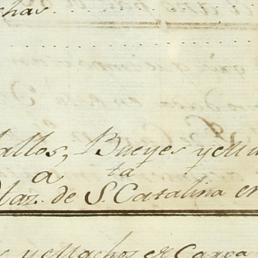 chas.
allos, Bueyes y
a la
Haz. de S. Catalina en
s y Machos et Carga